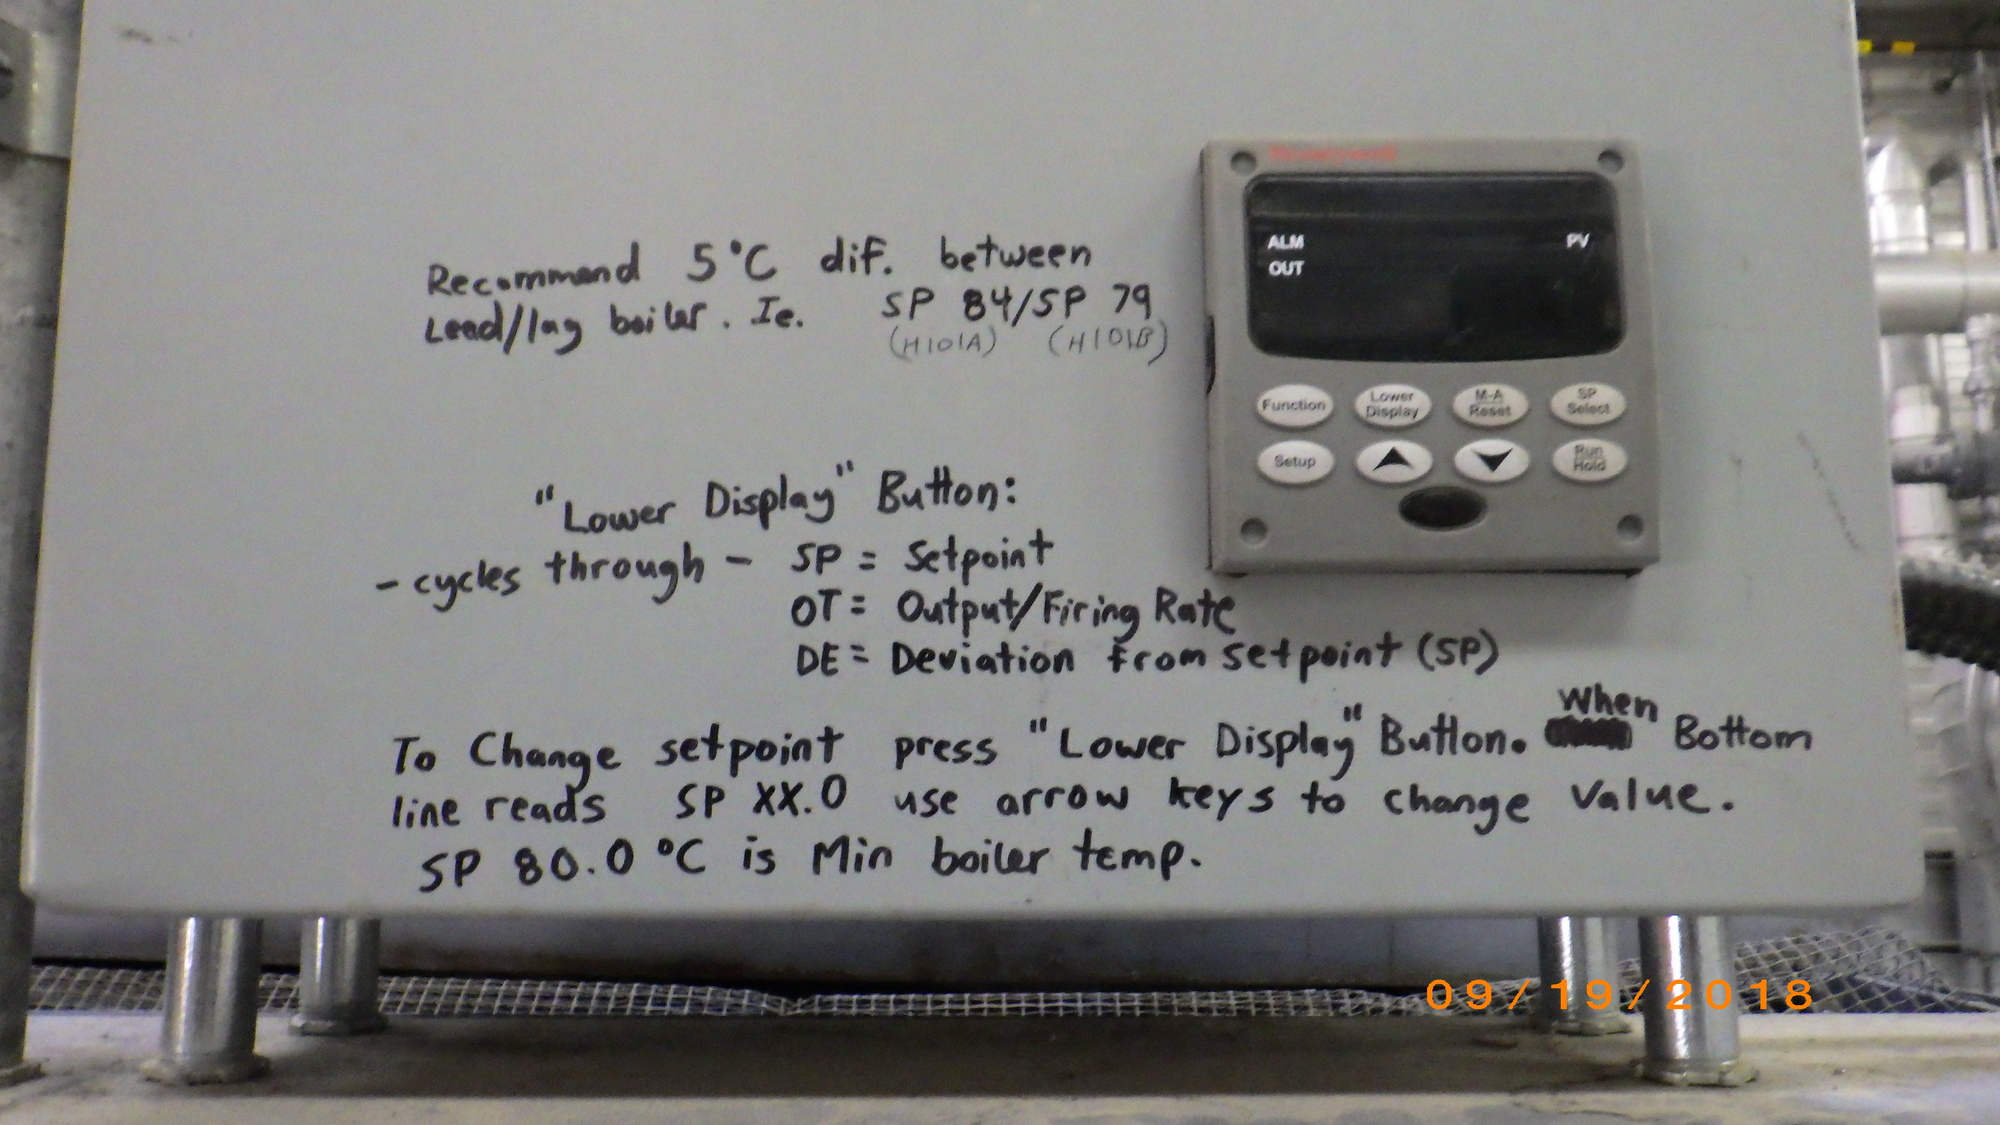 Honeywell
ALM
PV
OUT
Function
Lower Display
M-A Reset
SP Select
Setup
Run Hold
Recommend 5°C dif. between
Lead/lag boiler. Ie. SP 84/SP 79
(H101A) (H101B)
"Lower Display" Button:
- cycles through - SP = Setpoint
OT = Output/Firing Rate
DE = Deviation from setpoint (SP)
To Change setpoint press "Lower Display" Button. When Bottom
line reads SP XX.0 use arrow keys to change value.
SP 80.0 °C is Min boiler temp.
09/19/2018